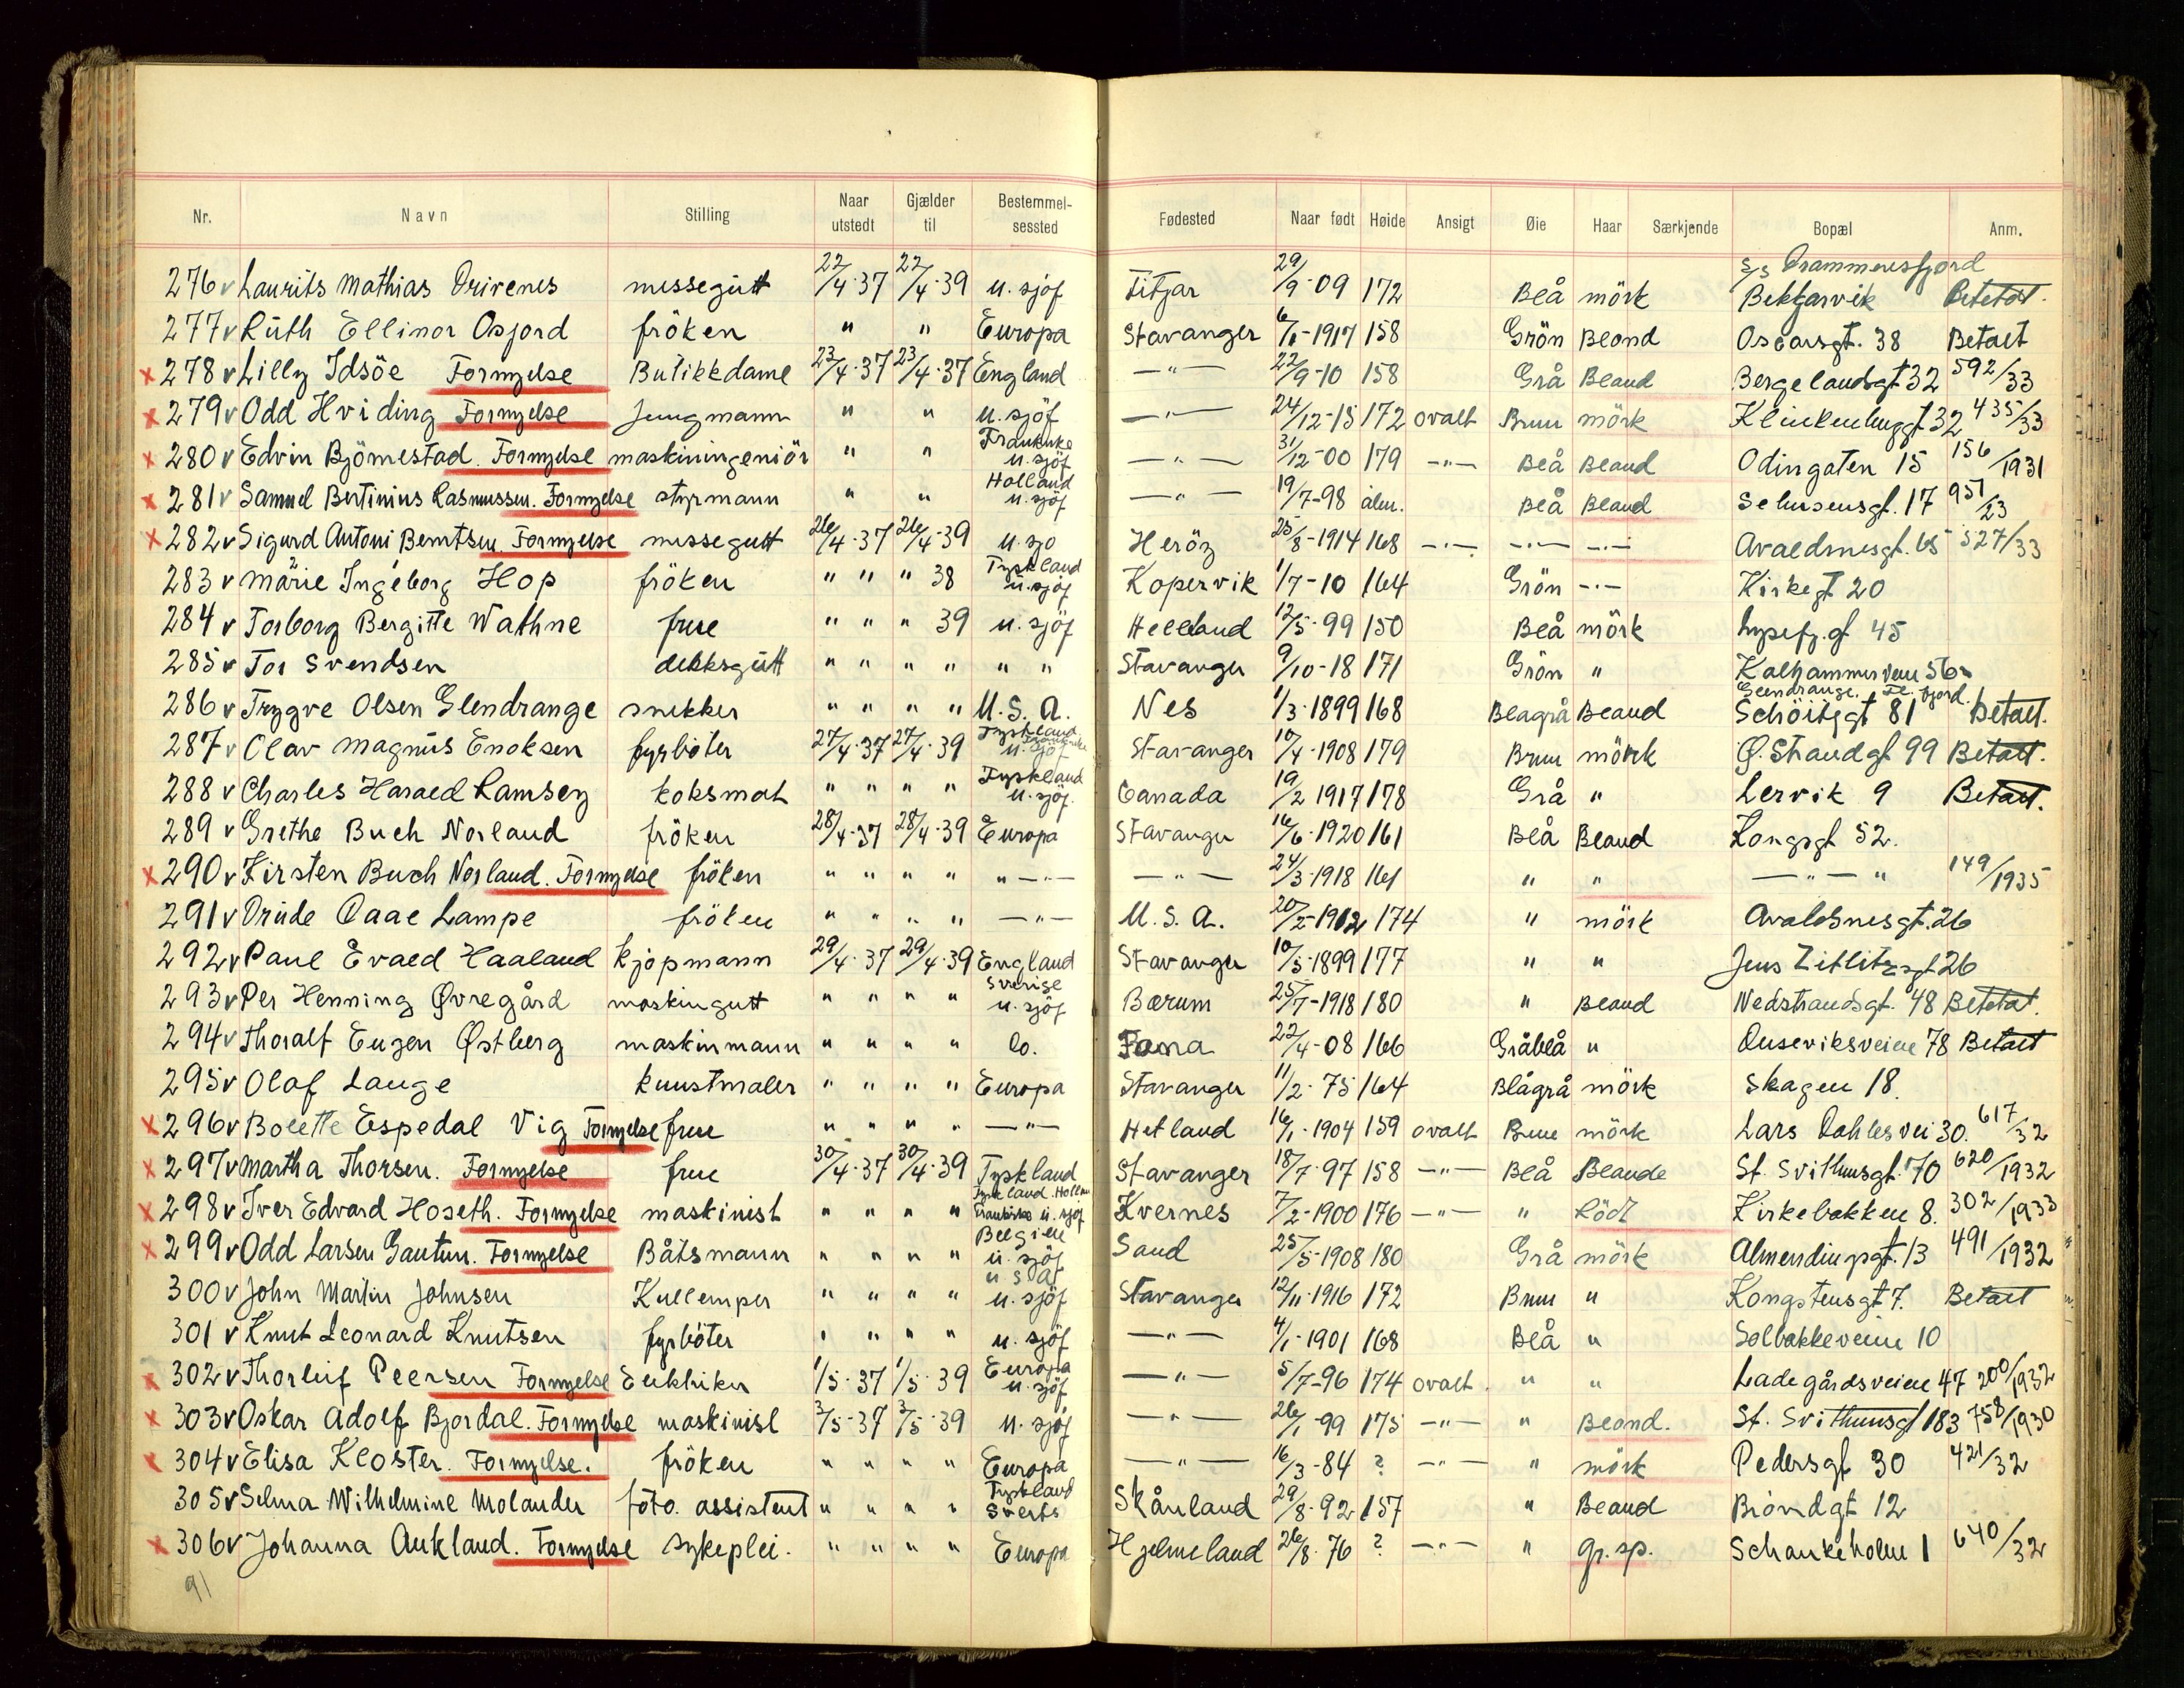 Nr. Navn Stilling Naar utstedt Gjælder til Bestemmelsessted Fødested Naar født Høide Ansigt Øie Haar Særkjende Bopæl Anm.
276 v Laurits Mathias Drivenes messegutt 22/4-37 22/4-39 u. sjöf Fitjar 29/9-09 172 Blå mörk s/s Drammensfjord Bekkjarvik Betalt.
277 v Ruth Ellinor Osjord fröken " " Europa Stavanger 6/1-1917 158 Grön Blond Oscarsgt. 38 Betalt
x 278 v Lilly Idsöe Fornyelse Butikkdame 23/4-37 23/4-37 England —"— 22/9-10 158 Grå Bland Bergelandsgt 32 592/33
x 279 v Odd Hviding Fornyelse Jungmann " " u. sjöf —"— 24/12-15 172 ovalt Brun mörk 32 435/33
x 280 v Edvin Björnestad. Fornyelse maskiningeniör " " u. sjöf —"— 31/12-00 179 —"— Blå Bland Odingaten 15 156/1931
x 281 v Samuel Bertinius Rasmussen. Fornyelse styrmann " " Holland u. sjöf —"— 19/7-98 alm. Blå Bland 17 951/23
x 282 v Sigurd Antoni Berntsen. Fornyelse messegutt 26/4-37 26/4-39 u. sjo Heröy 25/8-1914 168 —"— —"— —"— Avaldsnesgt. 65 527/33
283 v Marie Ingeborg Hop fröken " " " 38 Tyskland u. sjöf Kopervik 1/7-10 164 Grön —"— Kirkegt 20
284 v Torborg Bergitte Wathne frue " " " 39 u. sjöf Helland 12/5-99 150 Blå mörk Lysefj.gt 45
285 v Tor Svendsen dekksgutt " " " " " " Stavanger 9/10-18 171 Grön " Kalhammerveien 56
286 v Trygve Olsen Glendrange snekker " " " " U. S. A. Nes 1/3-1899 168 Blagrå Bland Glendrange. Fjord. 81 Betalt.
287 v Olav Magnus Enoksen fyrböter 27/4-37 27/4-39 Tyskland u. sjö Stavanger 10/4-1908 179 Brun mörk Ø. Strandgt 99 Betalt.
288 v Charles Harald Ramsey koksmat " " " " Tyskland u. sjöf. Canada 19/2 1917 178 Grå " Lervik 9 Betalt.
289 v Grethe Buch Norland fröken 28/4-37 28/4-39 Europa Stavanger 16/6-1920 161 Blå Bland Kongsgt 52.
x 290 v Kirsten Buch Norland. Fornyelse fröken " " " " "—"— —"— 24/3-1918 161 " " —"— " 149/1935
291 v Drude Qaae Lampe fröken " " " " —"— U. S. A. 20/2-1912 174 " mörk Avaldsnesgt. 26
292 v Paul Evald Haaland kjøpmann 29/4-37 29/4-39 England Stavanger 10/5-1899 177 " " Jens Zetlitzsgt 26
293 v Per Henning Øvregård maskingutt " " " " Sverige u. sjöf Bærum 25/7-1918 180 " Bland Nedstrandsgt. 48 Betalt.
294 v Thoralf Eugen Østberg maskinmann " " " " Do. Fana 22/4-08 166 Gråblå " 78 Betalt
295 v Olaf Lange kunstmaler " " " " Europa Stavanger 11/2-75 164 Blågrå mörk Skagen 18.
x 296 v Bolette Espedal Vig Fornyelse frue " " " " —"— Hetland 16/1-1904 159 ovalt Brun mörk Lars Dahles vei 30. 617/32
x 297 v Martha Thorsen. Fornyelse frue 30/4-37 30/4-39 Tyskland Stavanger 18/7-97 158 —"— Blå Blande St. Svithunsgt. 70 620/1932
x 298 v Iver Edvard Hoseth. Fornyelse maskinist " " " " Tyskland. u. sjöf Kvernes 7/2-1900 176 —"— " Rödt Kirkebakken 8. 302/1933
x 299 v Odd Larsen Gautun. Fornyelse Båtsmann " " " " Belgien u. sjöf Sand 25/5-1908 180 Grå mörk Almendingsgt. 13 491/1932
300 v John Martin Johnsen Kullemper " " " " U S A u. sjöf Stavanger 12/11-1916 172 Brun " Kongstensgt 7. Betalt
301 v Knut Leonard Knutsen fyrböter " " " " u. sjöf —"— 4/1-1901 168 Blå " Solbakkeveien 10
x 302 v Thorleif Peersen Fornyelse 1/5-37 1/5-39 Europa u. sjöf —"— 5/7-96 174 ovalt. " " Ladegårdsveien 47 200/1932
x 303 v Oskar Adolf Bjordal. Fornyelse maskinist 3/5-37 3/5-39 u. sjöf —"— 26/1-99 175 —"— " Blond. St. Svithunsgt 183 758/1930
x 304 v Elisa Kloster. Fornyelse. fröken " " " " Europa —"— 16/3-84 ? —"— " mörk Pedersgt 30 421/32
305 v Selma Wilhelmine Molander foto. assistent " " " " Tyskland Skånland 29/8-92 157 " Bland 12
x 306 v Johanna Aukland. Fornyelse sykeplei. " " " " Europa Hjelmeland 26/8-76 ? —"— " gr.sp. Schankeholm 1 640/32
91